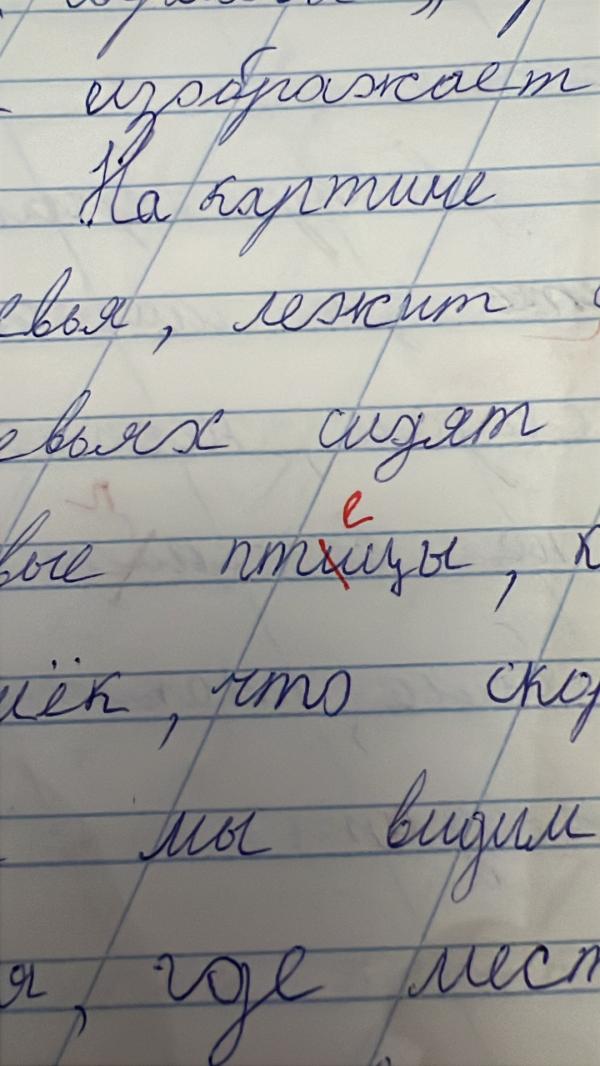 изображает
На картине
евья, лежит
евьях сидят
вые птицы, к
чёк, что скор
мы видим
я, где мест